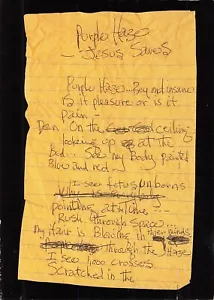 Purple Haze
- Jesus Saves
Purple Haze.. Boy not insane
is it pleasure or is it
pain -
Down On the ceiling
looking up at the
Bed - See my Body painted
Blue and red
I see fetus unborns
pointing at me ...
Rush through space
my Hair is Blowing in
through the Haze
I see 1,000 crosses
Scratched in the